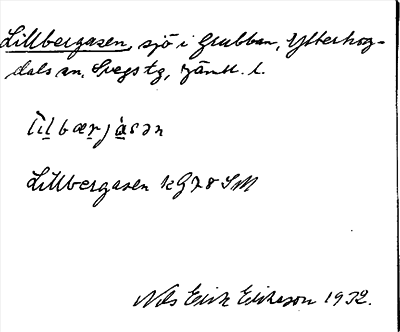 Lillbergasen, sjö i Grubban, Ytterhog-
dals sn, Svegs tg, Jämtl. l.
Lillbergasen kG78SM
Nils Erik Eriksson 1932.